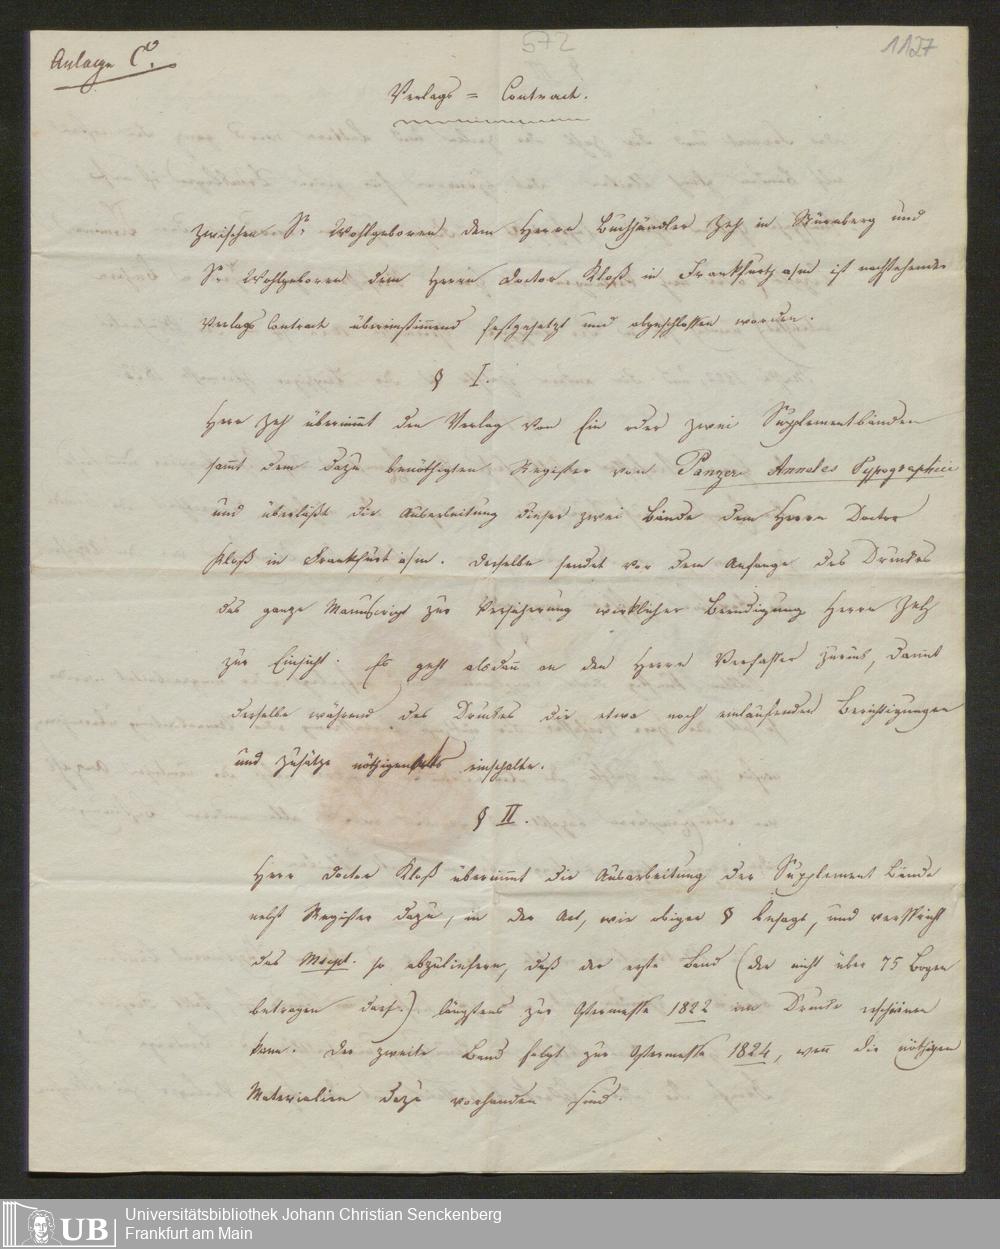 Anlage C.
572
1127
Verlags = Contract.
Zwischen Sr Wohlgeboren dem Herrn Buchhändler Zeh in Nürnberg und
Sr Wohlgeboren dem Herrn Doctor Kloß in Frankfurt a/m ist nachstehender
Verlags Contract übereinstimmend festgesetzt und abgeschlossen worden.
§ I.
Herr Zeh übernimmt den Verlag von Ein oder zwei Supplementbänden
sammt dem dazu benöthigten Register von Panzer Annales Typographici
und überläßt die Ausarbeitung dieser zwei Bände dem Herrn Doctor
Kloß in Frankfurt a/m. Derselbe sendet vor dem Anfange des Druckes
das ganze Manuscript zur Versicherung wirklicher Beendigung Herrn Zeh
zur Einsicht. Es geht alsdann an den Herrn Verfasser zurück, damit
derselbe während des Druckes die etwa noch einlaufenden Berichtigungen
und Zusätze nöthigenfalls einschalte.
§ II.
Herr Doctor Kloß übernimmt die Ausarbeitung der Supplement Bände
nebst Register dazu, in der Art, wie obiger § besagt, und verspricht
das Mscpt. so abzuliefern, daß der erste Band (der nicht über 75 Bogen
betragen darf.) längstens zur Ostermesse 1822 im Drucke erscheinen
kann. Der zweite Band folgt zur Ostermesse 1824, wenn die nöthigen
Materialien dazu vorhanden sind.
UB
Universitätsbibliothek Johann Christian Senckenberg
Frankfurt am Main